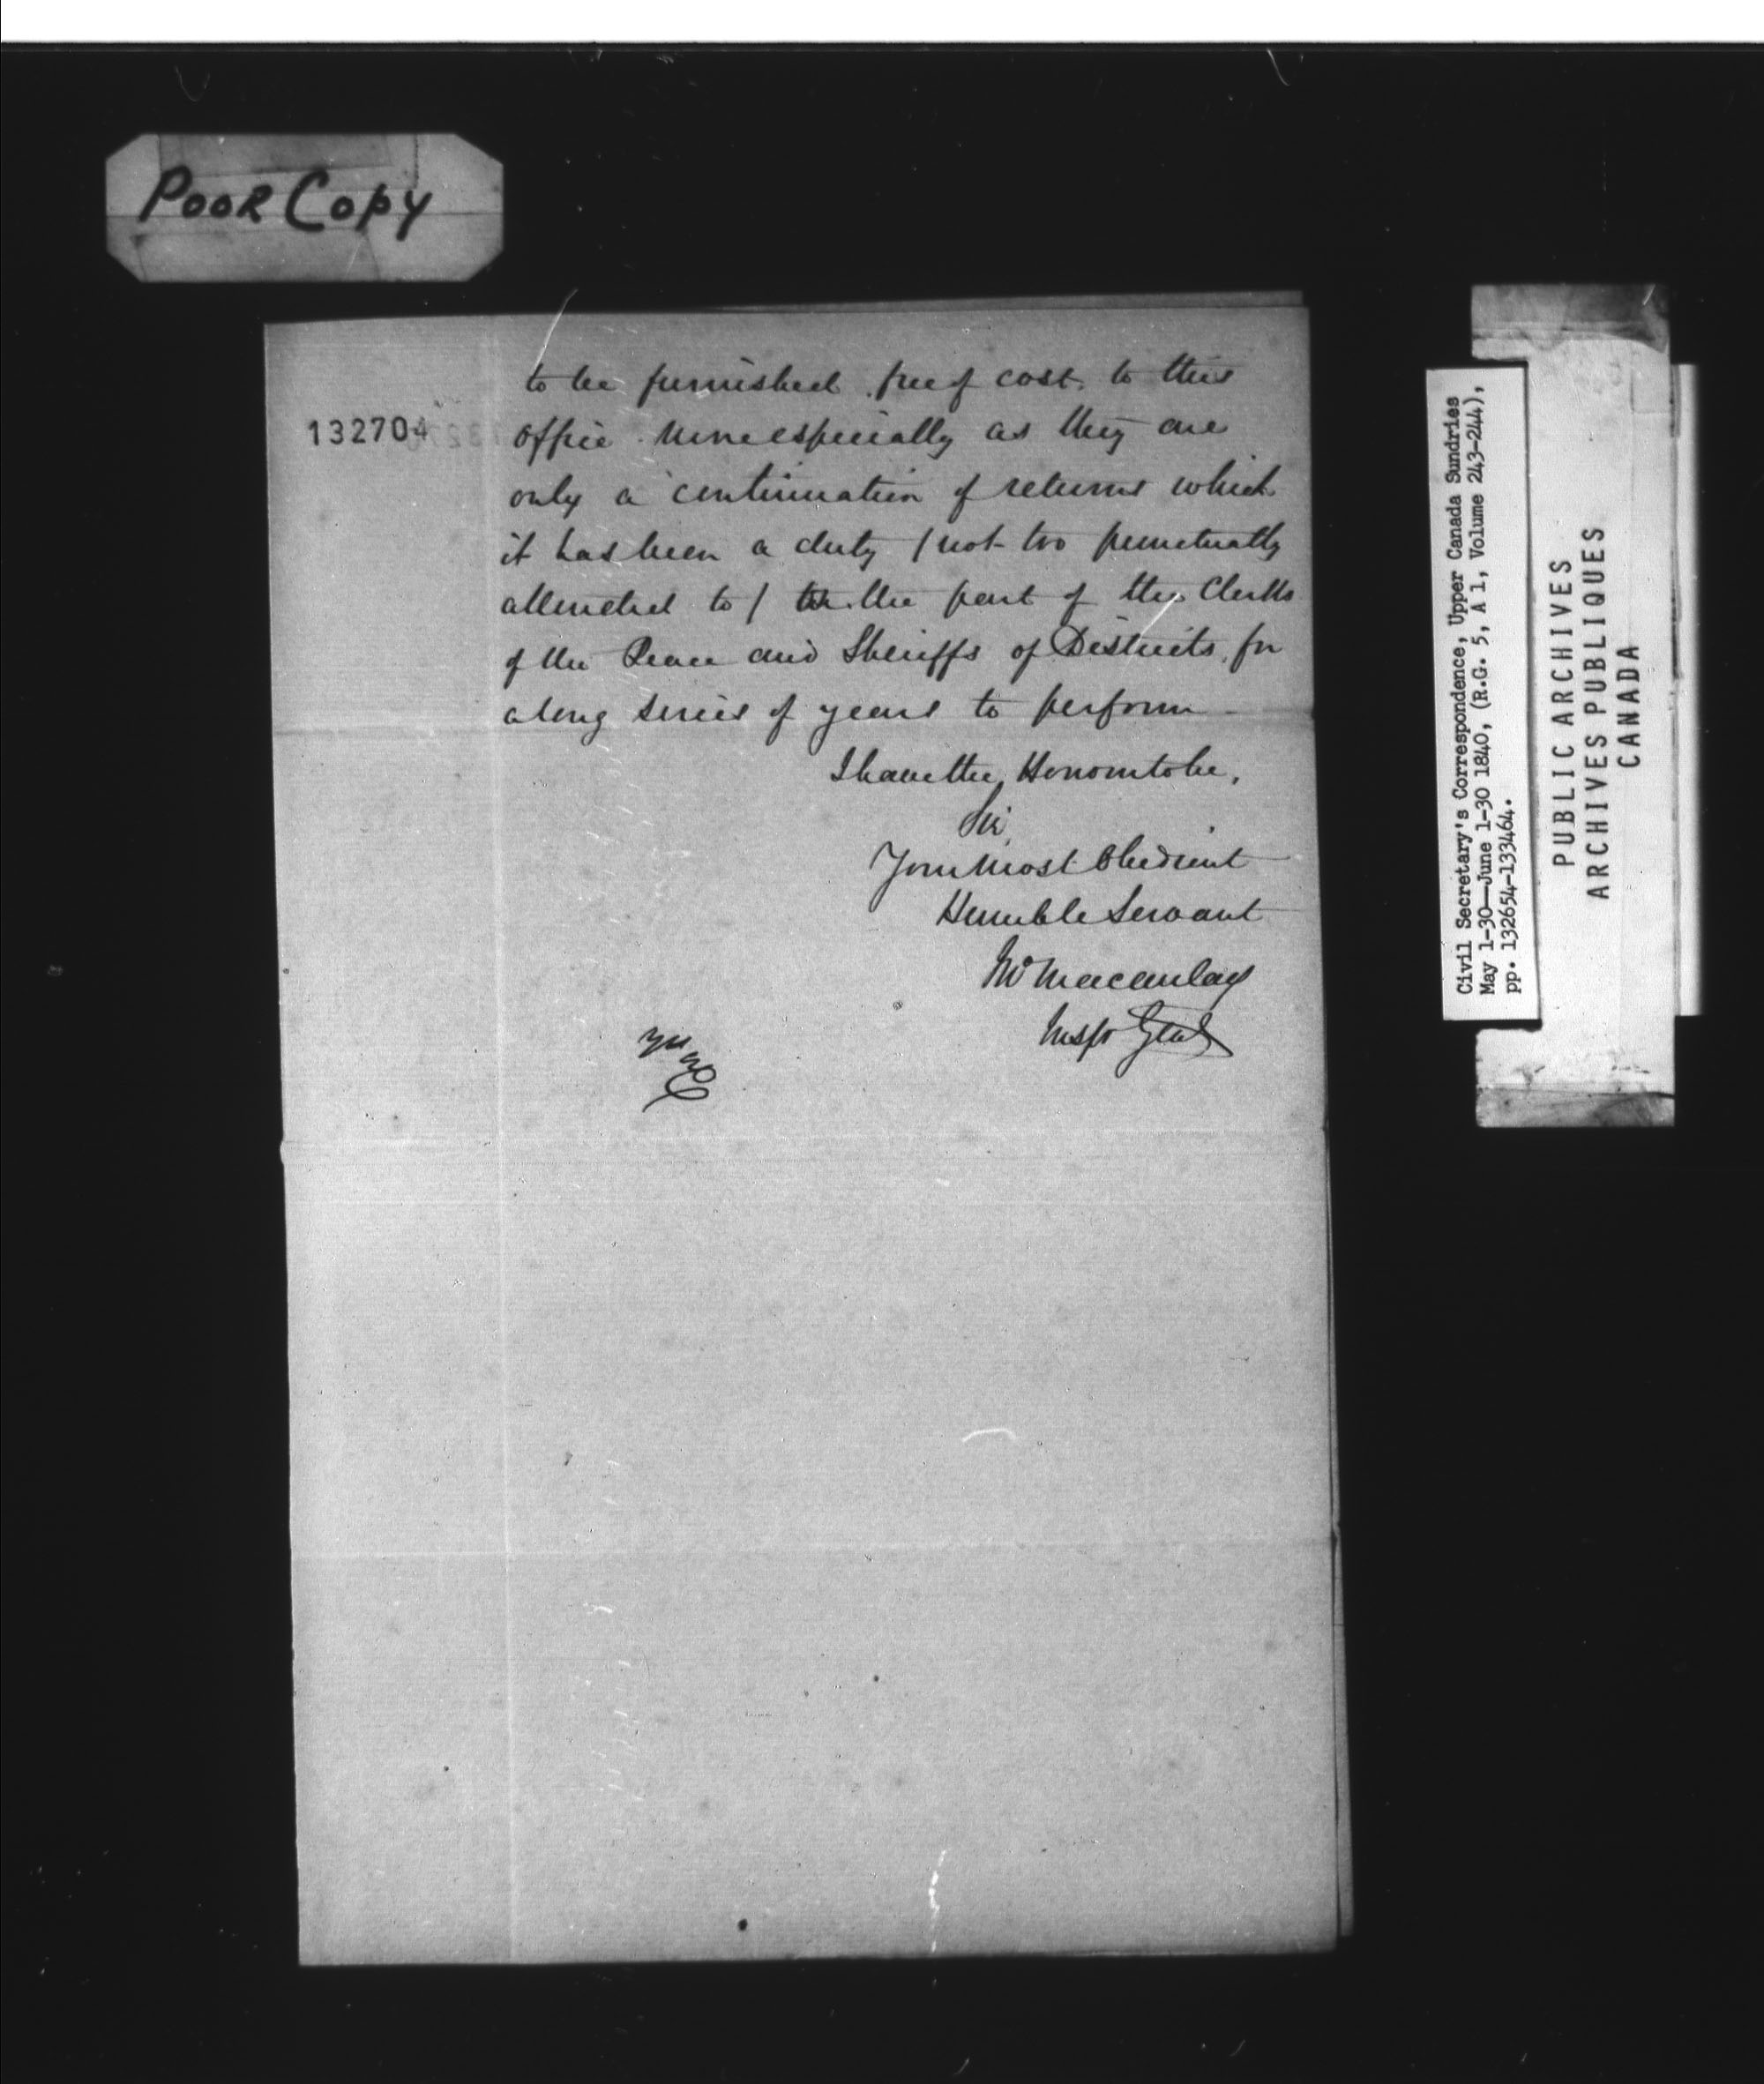 Poor Copy
132704
to be furnished free of cost to this
office more especially as they are
only a continuation of returns which
it has been a duty / not too punctually
attended to / the part of the Clerks
of the Peace and Sheriffs of Districts for
a long series of years to perform -
I have the Honor to be,
Sir
Your Most Obedient
Humble Servant
Macaulay
Insp Genl
Civil Secretary's Correspondence, Upper Canada Sundries
May 1-30—June 1-30 1840, (R.G. 5, A 1, Volume 243-244),
pp. 132654-133464.
PUBLIC ARCHIVES
ARCHIVES PUBLIQUES
CANADA